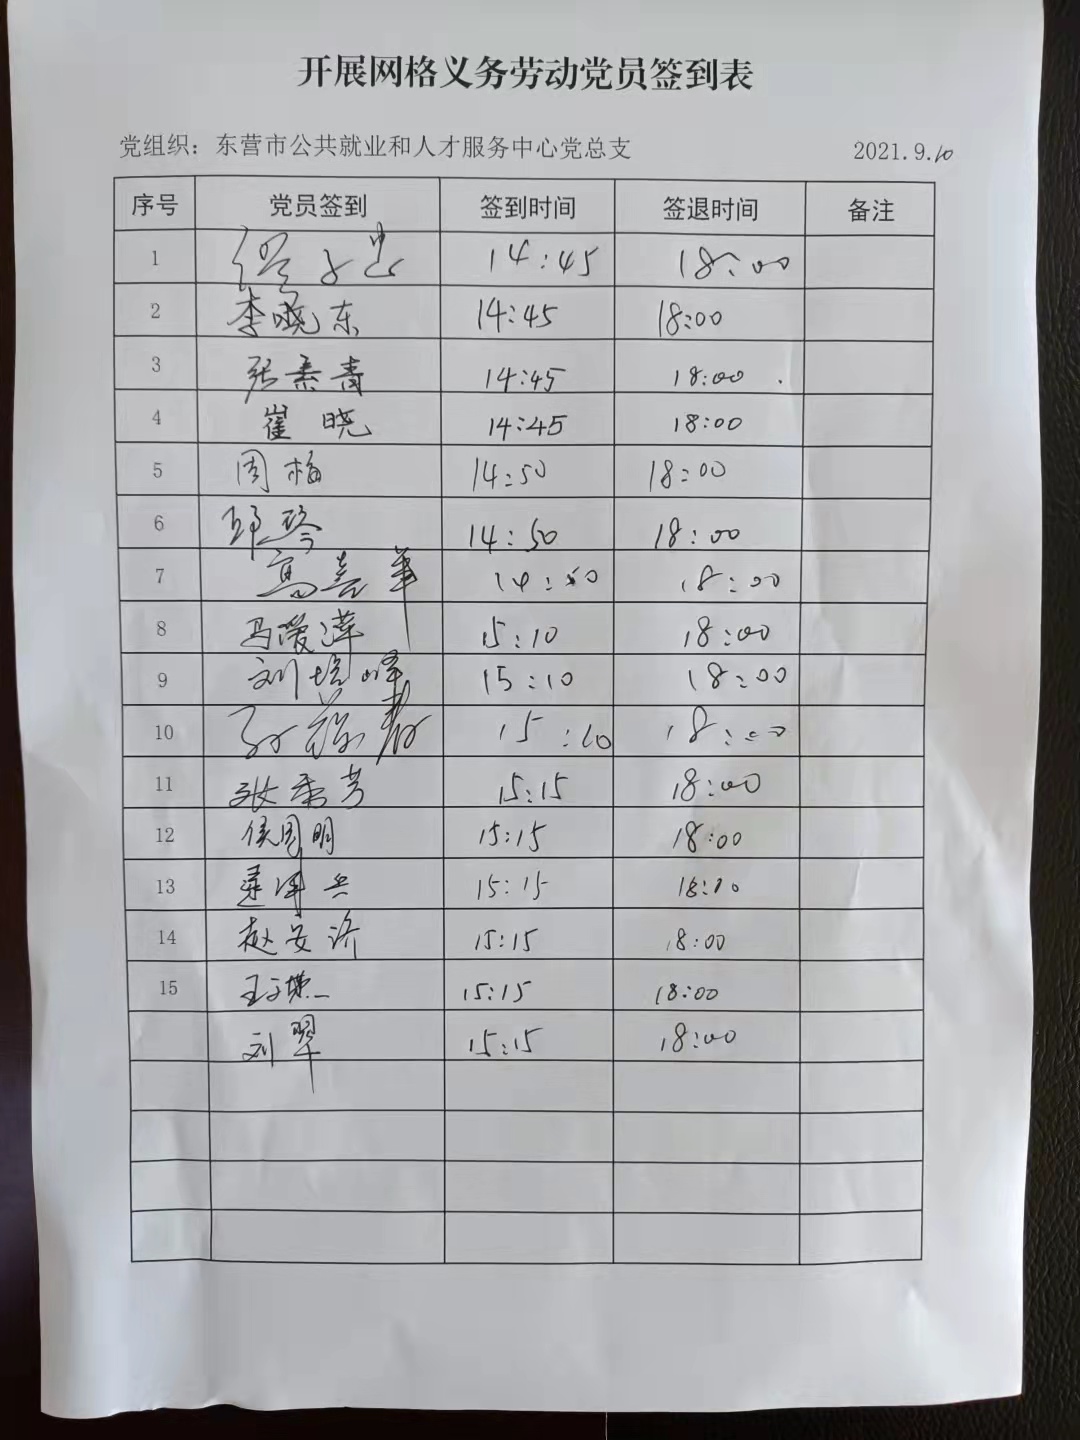 开展网格义务劳动党员签到表
党组织：东营市公共就业和人才服务中心党总支 2021.9.10
序号 党员签到 签到时间 签退时间 备注
1 14:45 18:00
2 李晓东 14:45 18:00
3 张素青 14:45 18:00
4 崔晓 14:45 18:00
5 周梅 14:50 18:00
6 邱琴 14:50 18:00
7 高嘉华 14:50 18:00
8 马爱萍 15:10 18:00
9 刘培峰 15:10 18:00
10 15:10 18:00
11 张秀芳 15:15 18:00
12 侯国明 15:15 18:00
13 15:15
14 赵安济 15:15 18:00
15 15:15 18:00
刘翠 15:15 18:00